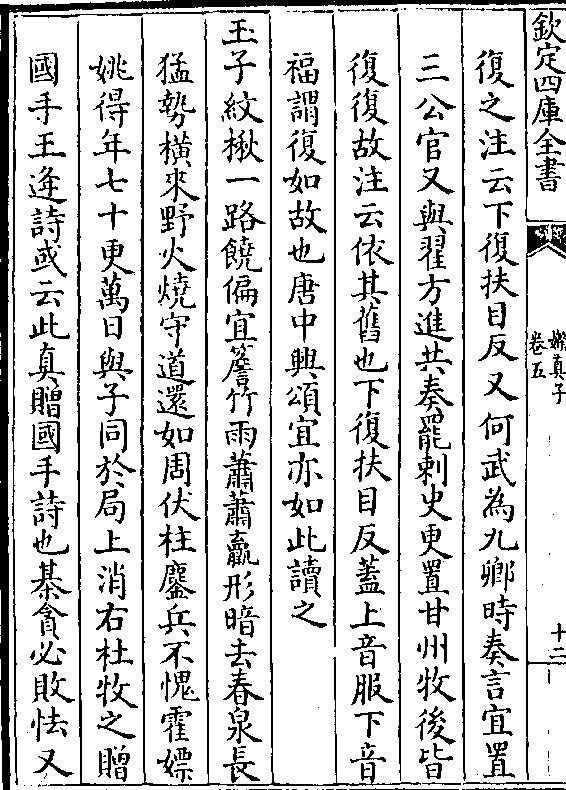 欽定四庫全書
嬾真子
卷五
十二
復之注云下復扶目反又何武為九卿時奏言宜置
三公官又與翟方進共奏罷刺史更置甘州牧後皆
復復故注云依其舊也下復扶目反蓋上音服下音
福謂復如故也唐中興頌宜亦如此讀之
玉子紋楸一路饒偏宜簷竹雨蕭蕭羸形暗去春泉長
猛勢橫來野火燒守道還如周伏柱鏖兵不愧霍嫖
姚得年七十更萬日與子同於局上消右杜牧之贈
國手王逄詩或云此真贈國手詩也棊貪必敗怯又